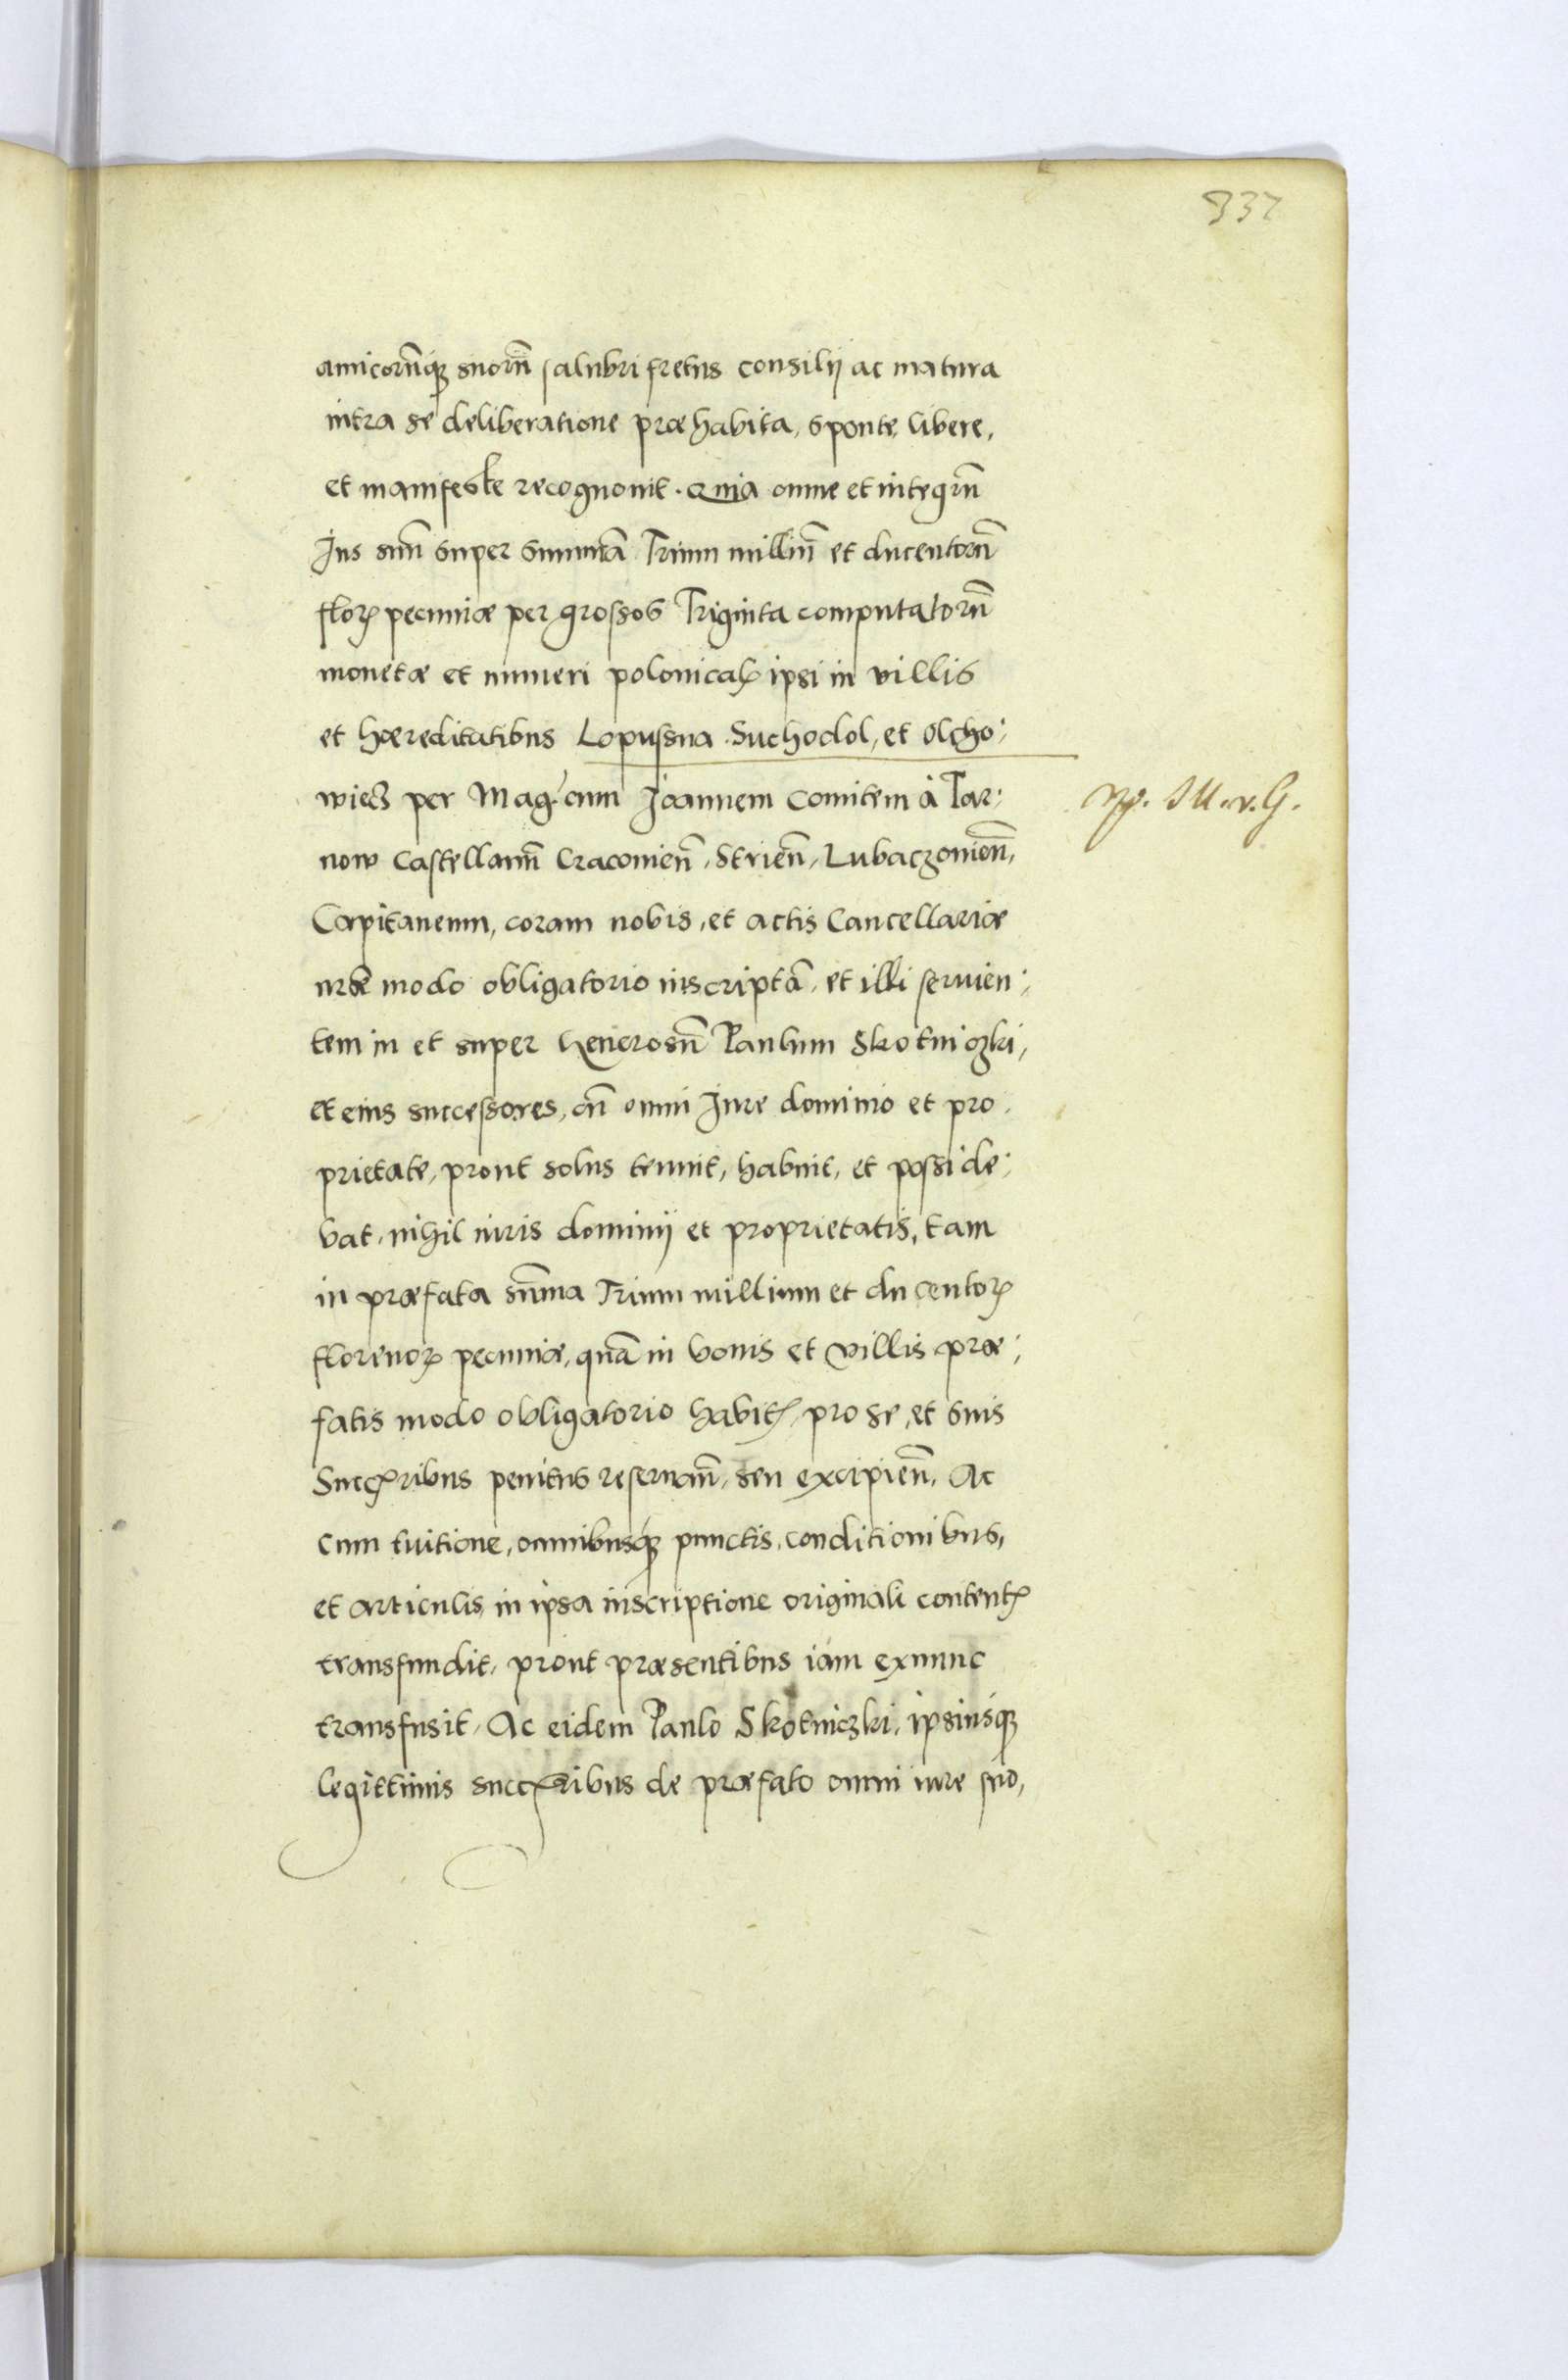 337
amicorūq̃ȝ suorū salubri fretus consilij ac matura
intra se deliberatione præhabita, sponte, libere,
et manifeste recognouit. Quia omne et integrū
Jus suū super summā Trium milliū et ducentorū
floꝝ pecuniæ per grossos Triginta computatorū
monetæ et numeri polonicaꝝ ipsi in villis
et hæreditatibus Lopussna Suchodol, et Olcho:
wiecz per Mag:cum Joannem Comitem à Tar:
now Castellanū Cracouień, Strień, Lubaczouień,
Capitaneum, coram nobis, et actis Cancellariæ
nr̄æ modo obligatorio inscriptā, et illi seruien:
tem in et super Generosū Paulum Skotniczki,
et eius successores, cū omni Jure dominio et pro:
prietate, prout solus tenuit, habuit, et posside:
bat, nihil iuris dominij et proprietatis, tam
in præfata sūmma Trium millium et ducentoꝝ
florenoꝝ pecuniæ, quā in bonis et villis præ:
fatis modo obligatorio habitꝭ, pro se, et suis
Succꝭribus penitus reseruań, seu excipień, Ac
cum tuitione, omnibusq̃ȝ punctis, conditionibus,
et articulis, in ipsa inscriptione originali contentꝭ
transfundit, prout præsentibus iam exnunc
transfusit, Ac eidem Paulo Skotniczki, ipsiusq̃ȝ
legittimis succꝭribus de præfato omni iure suo,